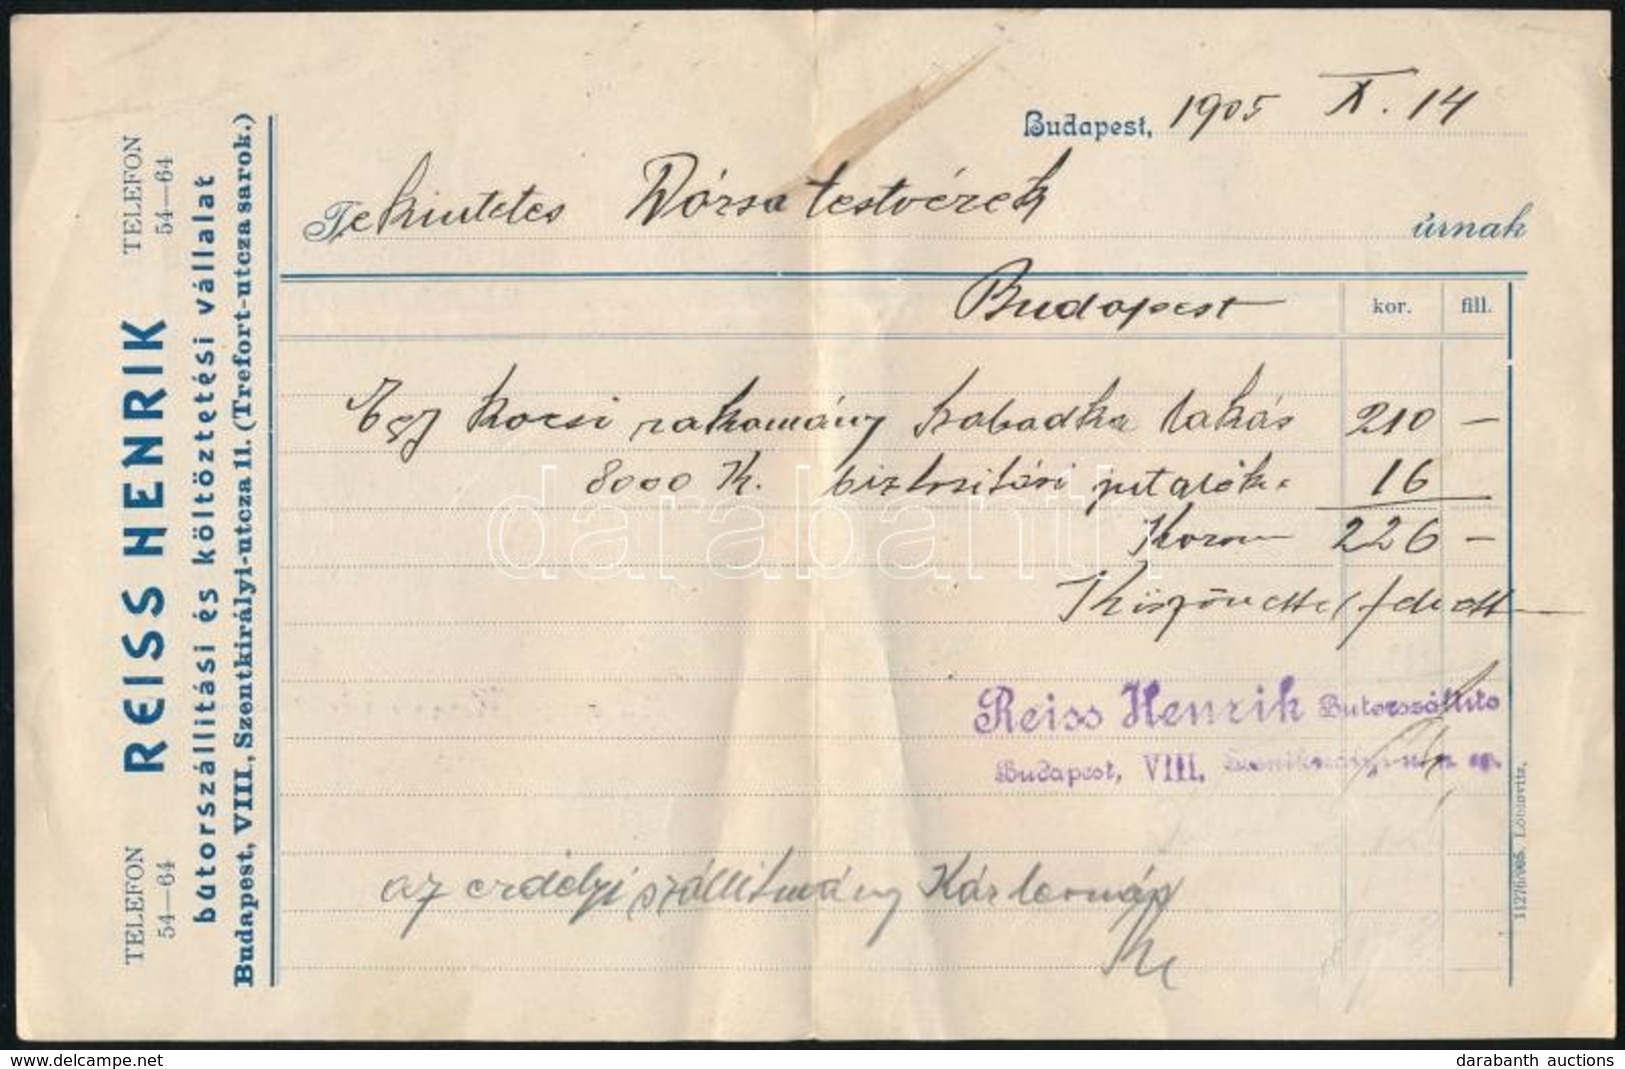 TELEFON
54—64
REISS HENRIK
TELEFON
54—64
bútorszállitási és költöztetési vállalat
Budapest, VIII., Szentkirályi-utcza 11. (Trefort-utcza sarok.)
Budapest, 1905 X. 14
Tekintetes Dózsa testvérek úrnak
Budapest kor. fill.
Egy kocsi rakomány Szabadka lakás 210 —
8000 K. biztositási 16
Korona 226 —
Köszönettel felvett
Reiss Henrik Butorszállitó
Budapest, VIII,
az erdélyi szállitmány
11276/905. Löbl
darabanth
www.delcampe.net
darabanth auctions